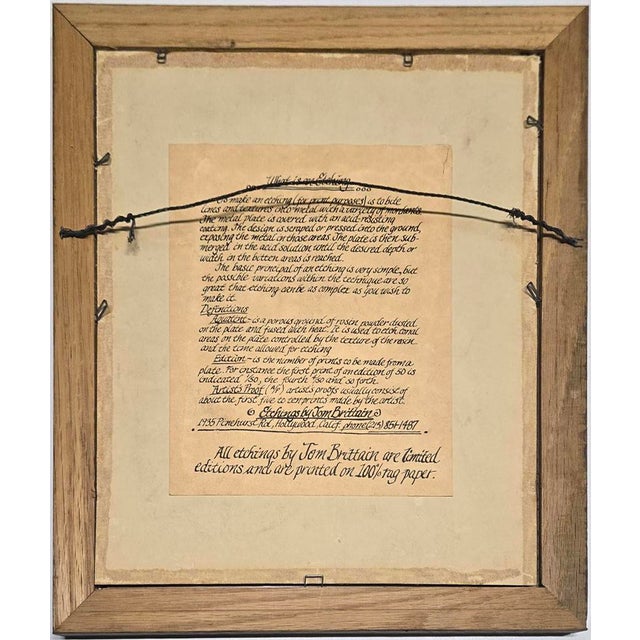 What is an Etching
To make an etching (for print purposes) is to bite
lines and textures into metal with a variety of mordants.
The metal plate is covered with an acid-resisting
coating. The design is scraped or pressed into the ground,
exposing the metal in those areas. The plate is then sub-
merged in the acid solution until the desired depth or
width in the bitten areas is reached.
The basic principal of an etching is very simple, but
the possible variations within the technique are so
great that etching can be as complex as you wish to
make it.
Definitions
Aquatent - is a porous ground of rosin powder dusted
on the plate and fused with heat. It is used to etch tonal
areas on the plate controlled by the texture of the rosin
and the time allowed for etching
Edition - is the number of prints to be made from a
plate. For instance the first print of an edition of 50 is
indicated 1/50, the fourth 4/50 and so forth.
Artist's Proof (A/P) artist's proofs usually consist of
about the first five to ten prints made by the artist.
Etchings by Tom Brittain
1935 Penehurst Rd, Hollywood, Calif. phone (213) 851-1487
All etchings by Tom Brittain are limited
editions and are printed on 100% rag paper.